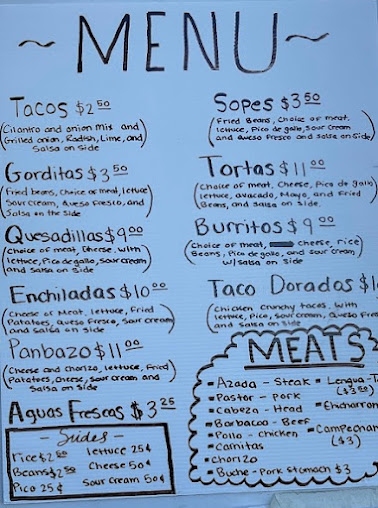 ~ MENU ~
Tacos $2.50
(Cilantro and onion mix and
Grilled onion, Radish, Lime, and
Salsa on side)
Gorditas $3.50
(Fried beans, choice of meat, lettuce
Sour cream, Queso Fresco, and
Salsa on the side)
Quesadillas $9.00
(Choice of meat, cheese, with
lettuce, Pico de gallo, sour cream
and salsa on side)
Enchiladas $10.00
(Cheese or Meat, lettuce, Fried
Patatoes, queso fresco, sour cream
and salsa on side)
Panbazo $11.00
(Cheese and chorizo, lettuce, Fried
Patatoes, cheese, sour cream and
Salsa on side)
Aguas Frescas $3.25
- Sides -
rice $2.50
Beans $2.50
Pico 25¢
lettuce 25¢
Cheese 50¢
Sour cream 50¢
Sopes $3.50
(Fried Beans, choice of meat,
lettuce, Pico de gallo, sour cream
and queso fresco and salsa on side)
Tortas $11.00
(Choice of meat, cheese, Pico de gallo
lettuce, avacado, Mayo, and Fried
Beans, and salsa on side.
Burritos $9.00
(Choice of meat, cheese, rice
Beans, Pico de gallo, and sour cream
w/ salsa on side)
Taco Dorados $1
(Chicken crunchy tacos, with
lettuce, Pico, sour cream, queso
and salsa on side
MEATS
- Azada - Steak
- Pastor - pork
- Cabeza - Head
- Barbacoa - Beef
- Pollo - chicken
- Carnitas
- Chorizo
- Buche - Pork stomach $3
- Lengua - T
($3.50)
- Chicharron
- Campechan
($3)